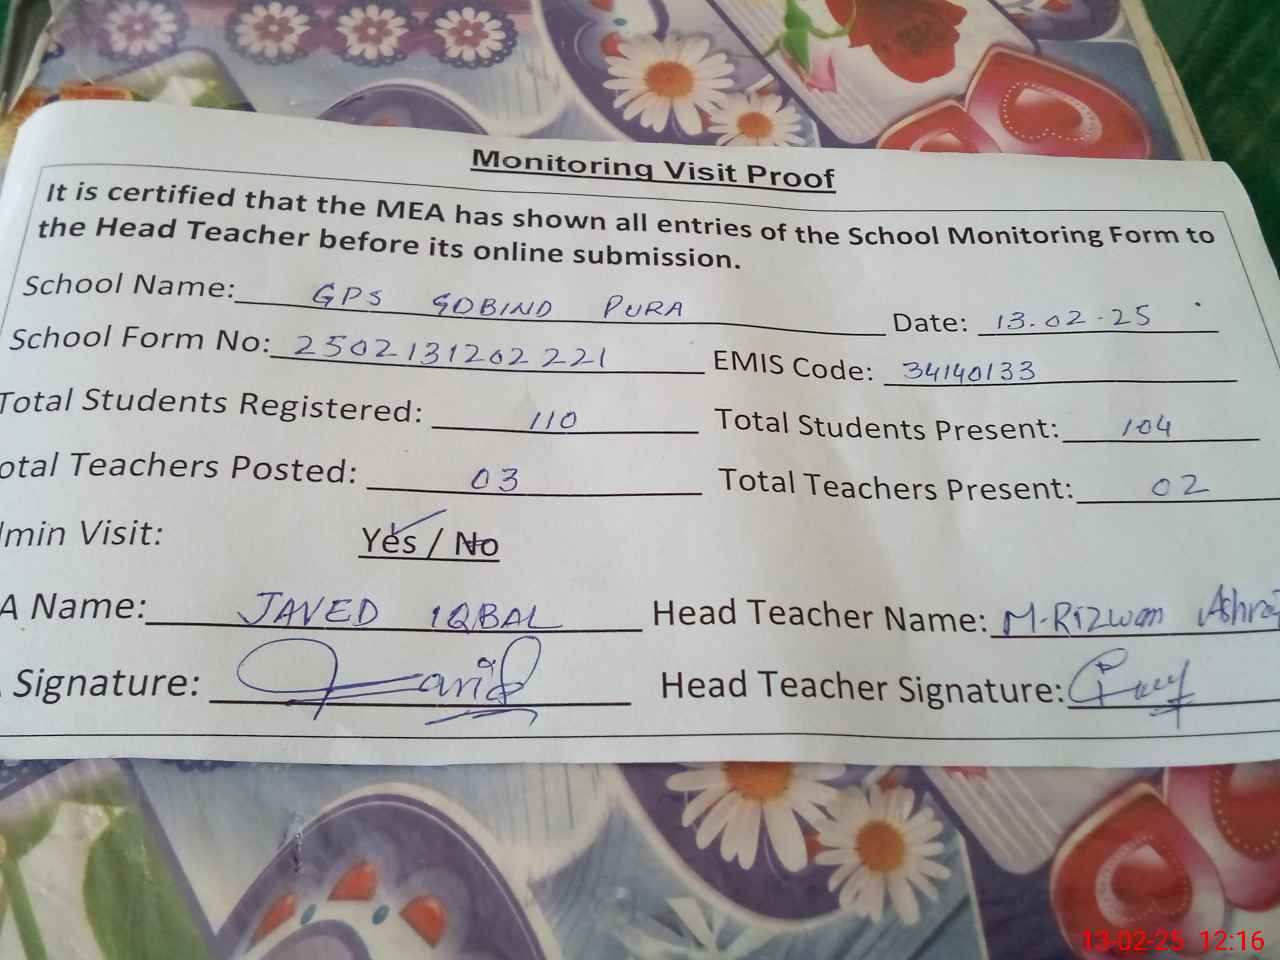 Monitoring Visit Proof
It is certified that the MEA has shown all entries of the School Monitoring Form to
the Head Teacher before its online submission.
School Name: GPS GOBIND PURA Date: 13.02.25
School Form No: 2502131202221 EMIS Code: 34140133
Total Students Registered: 110 Total Students Present: 104
otal Teachers Posted: 03 Total Teachers Present: 02
dmin Visit: Yes / No
A Name: JAVED IQBAL Head Teacher Name: M.Rizwan Ashraf
Signature: Javid Head Teacher Signature:
13-02-25 12:16